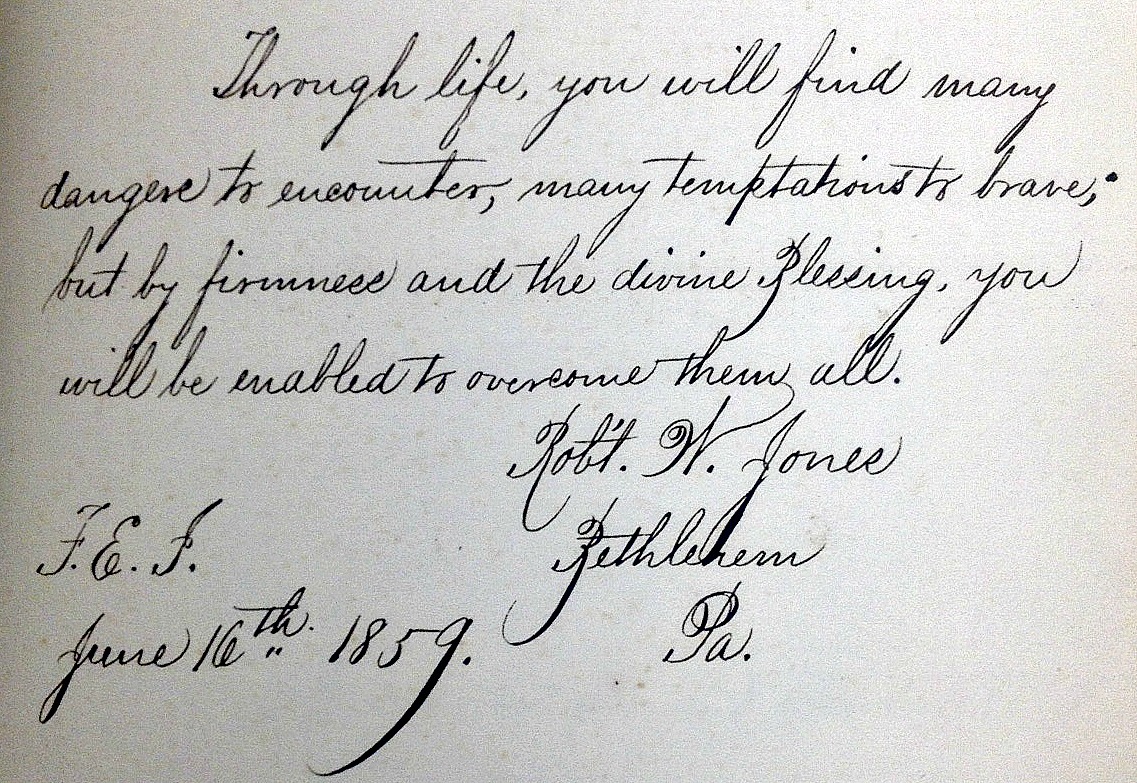 Through life, you will find many
dangers to encounter, many temptations to brave;
but by firmness and the divine Blessing, you
will be enabled to overcome them all.
Rob't. W. Jones
F. E. I. Bethlehem
June 16th. 1859. Pa.